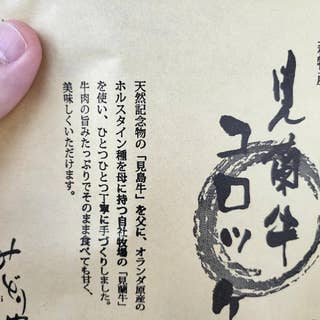 見蘭牛
コロッケ
天然記念物の「見島牛」を父に、オランダ原産の
ホルスタイン種を母に持つ自社牧場の「見蘭牛」
を使い、ひとつひとつ丁寧に手づくりしました。
牛肉の旨みたっぷりでそのまま食べても甘く、
美味しくいただけます。